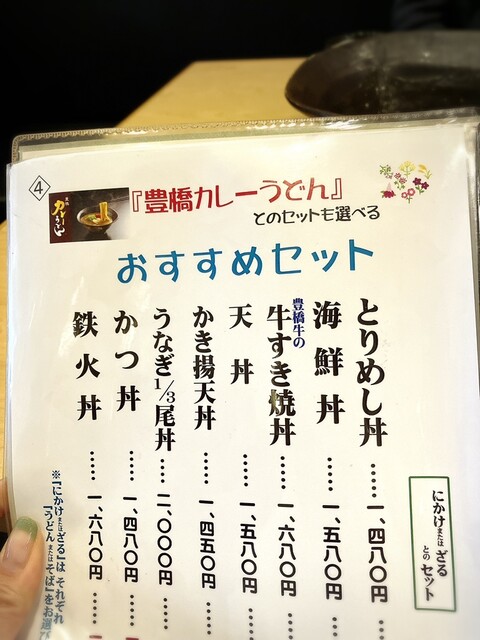 4
カレーうどん
『豊橋カレーうどん』
とのセットも選べる
おすすめセット
にかけまたはざる
とのセット
とりめし丼……一、四八〇円……
海鮮丼……一、五八〇円……
豊橋牛の
牛すき焼丼……一、六八〇円……
天丼……一、五八〇円……
かき揚天丼……一、四五〇円……
うなぎ1/3尾丼……二、〇〇〇円……
かつ丼……一、四八〇円……
鉄火丼……一、六八〇円……
※『にかけまたはざる』は それぞれ
『うどんまたはそば』をお選び